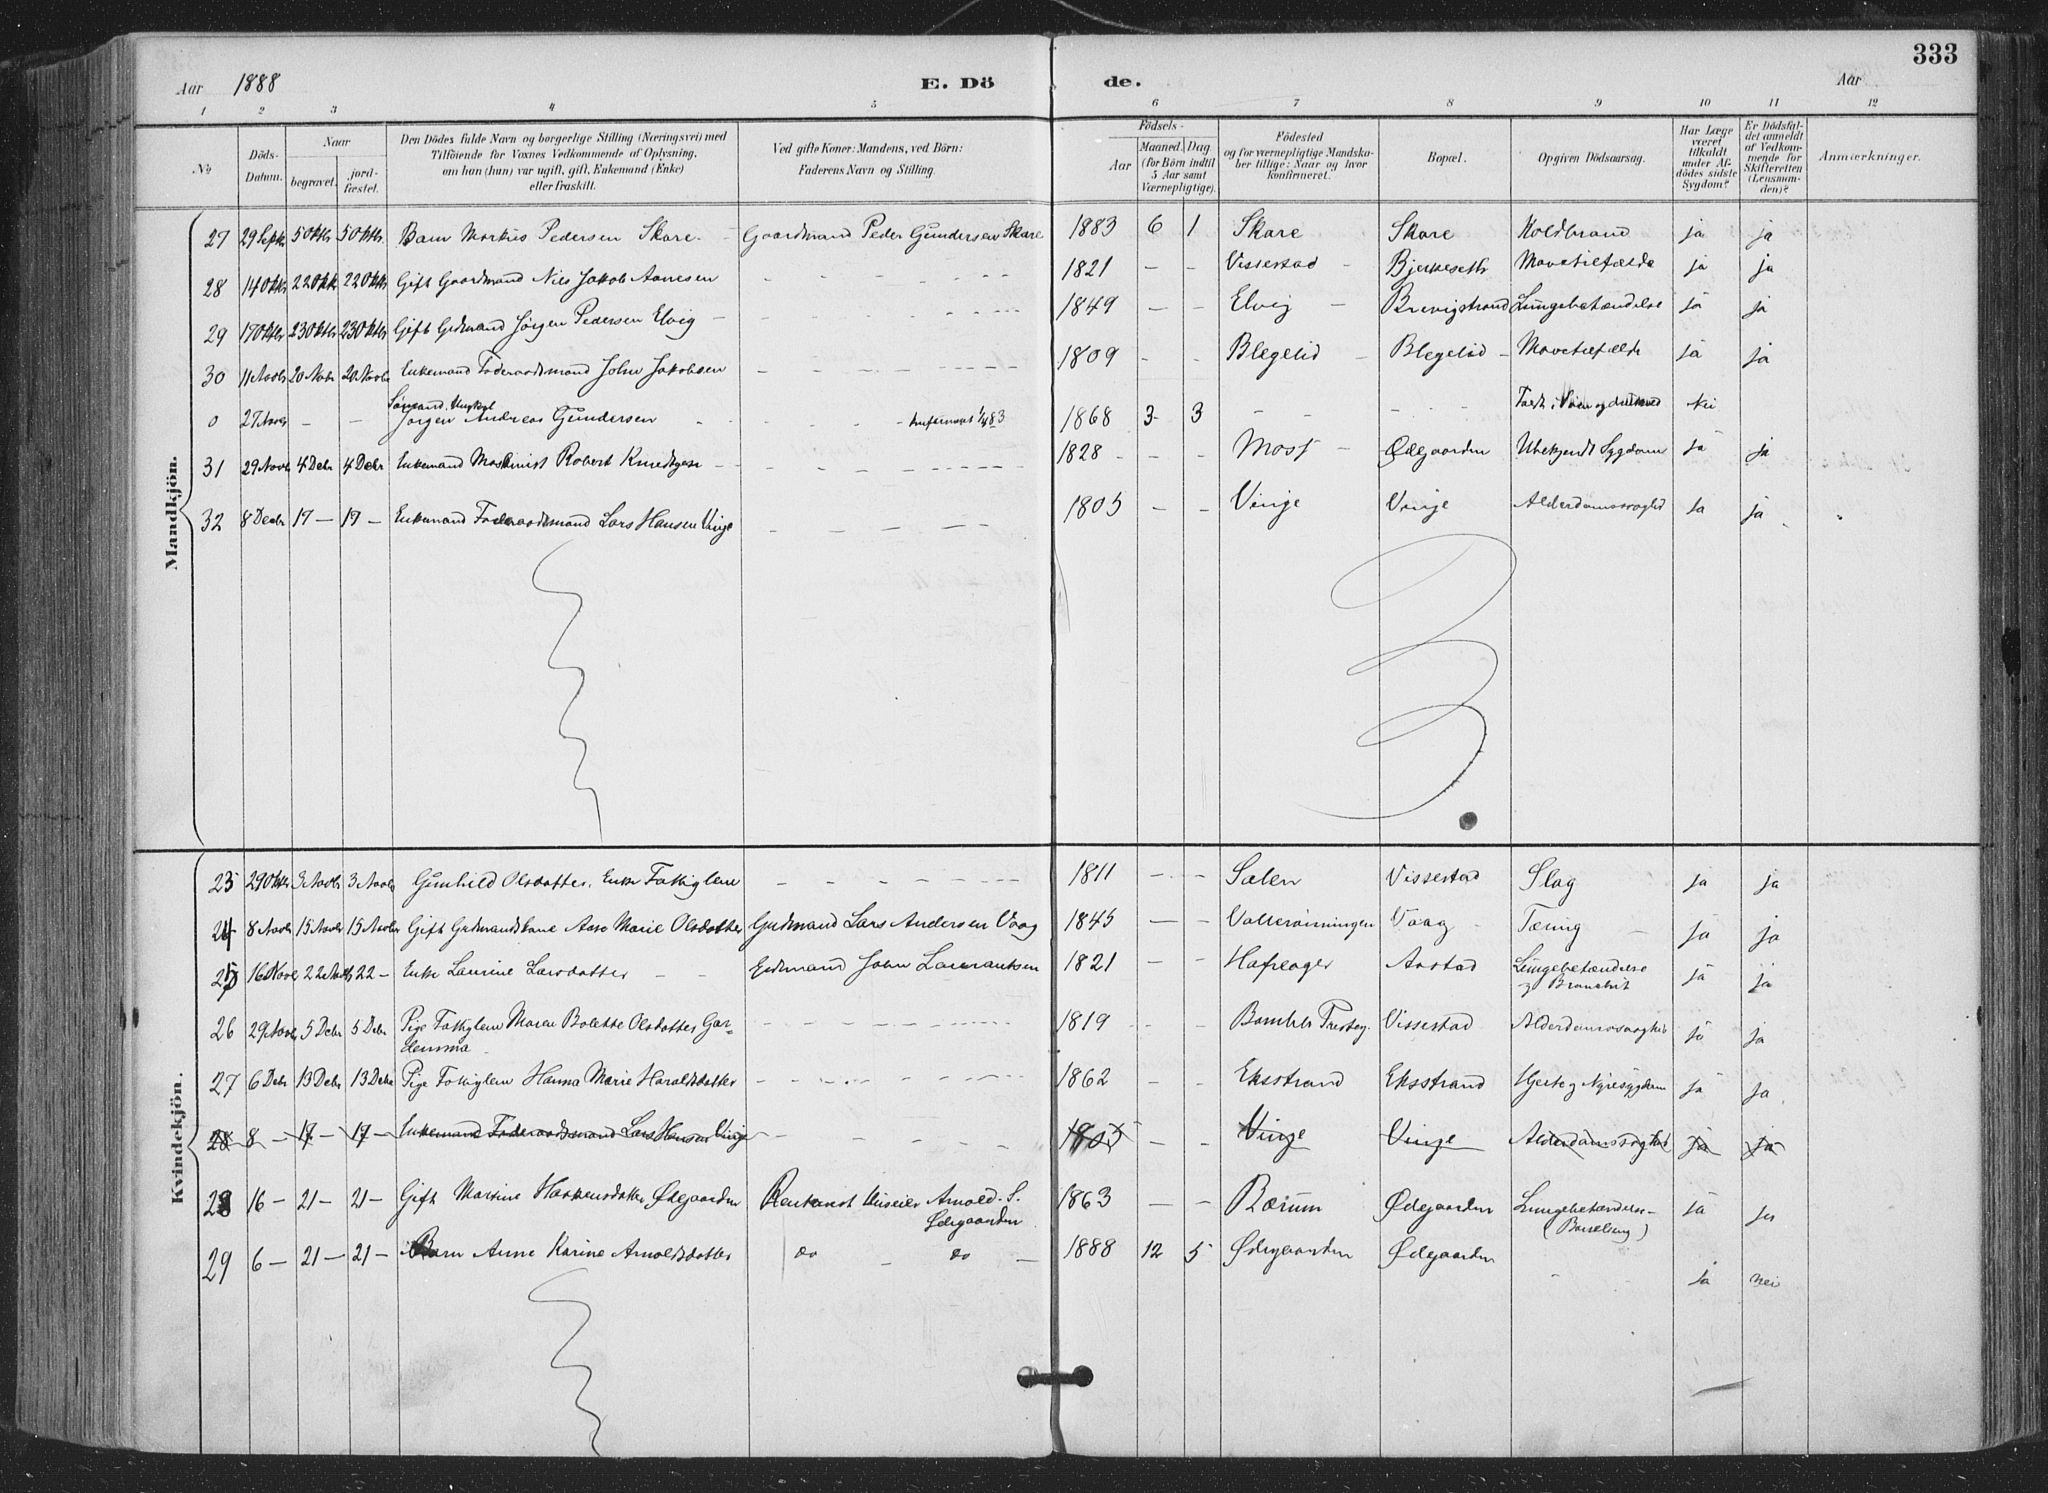 333
Aar 1888 E. Dö de. Aar
1 2 3 4 5 6 7 8 9 10 11 12
No. Döds-Datum. Naar begravet. jordfæstet. Den Dödes fulde Navn og borgerlige Stilling (Næringsvei) med Tilföiende for Voxnes Vedkommende af Oplysning, om han (hun) var ugift, gift, Enkemand (Enke) eller fraskilt. Ved gifte Koner: Mandens, ved Börn: Faderens Navn og Stilling. Födsels- Aar Maaned. Dag (for Börn indtil 5 Aar samt Værnepligtige). Födested og for værnepligtige Mandskaber tillige: Naar og hvor konfirmeret. Bopæl. Opgiven Dödsaarsag. Har Læge været tilkaldt under Afdödes sidste Sygdom? Er Dödsfaldet anmeldt af Vedkommende for Skifteretten (Lensmanden)? Anmærkninger.
Mandkjön.
27 29 Septr 5 Oktr 5 Oktr Barn Markus Pedersen Skare - Gaardmand Peder Gundersen Skare 1883 6 1 Skare Skare Koldbrand ja ja
28 14 Oktr 22 Oktr 22 Oktr Gift Gaardmand Nils Jakob Aanesen 1821 - - Vissestad - Bjerkeseth Mavetilfælde ja ja
29 17 Oktr 23 Oktr 23 Oktr Gift Grdmand Jørgen Pedersen Elvig - 1849 - - Elvig - Brevigstrand Lungebetændelse ja ja
30 11 Novbr 20 Novbr 20 Novbr Enkemand Føderaadsmand John Jakobsen 1809 - - Blegelid - Blegelid - Mavetilfælde ja ja
0 27 Novbr - - Sømand Ungkarl Jørgen Andreas Gundersen konfirmeret 1/4 83 1868 3 3 - - - Faldt i Søen og drukned Nei
31 29 Novbr 4 Decbr 4 Decbr Enkemand Maskinist Robert Knudtzen 1828 - - - Moss - Ødegaarden Ubekjendt Sygdom ja ja
32 8 Decbr 17 - 19 - Enkemand Føderaadsmand Lars Hansen Vinje 1805 - - Vinje Vinje Alderdomssvaghed ja ja
Kvindekjön.
23 29 Oktr 3 Novbr 3 Novbr Gunhild Olsdatter, Enke Fattiglem 1811 - - Salen Vissestad Slag ja ja
24 8 Novbr 15 Novbr 15 Novbr Gift Grdmandskone Aase Marie Olsdatter Grdmand Lars Andersen Vaag 1845 - - Valleraminingen Vaag Tæring ja ja
25 16 Novbr 22 Novbr 22 - Enke Laurine Larsdatter - - Grdmand John Laurantsen 1821 - - Hafsager Aastad Lungebetændelse og Bronchit ja ja
26 29 Novbr 5 Decbr 5 Decbr Pige Fattiglem Maren Bolette Olsdatter Gar-
densrna 1819 - - Bamble Presteg. Vissestad Alderdomssvaghed ja ja
27 6 Decbr 13 Decbr 13 Decbr Pige Fattiglem Hanna Marie Haraldsdatter 1862 - - Eksstrand Eksstrand Hjerte og Nyresygdom ja ja
28 8 - 17 - 19 - Enkemand Føderaadsmand Lars Hansen Vinje 1805 - - Vinje Vinje Alderdomssvaghed ja ja
28 16 - 21 - 21 - Gift Martine Haakensdatter Ødegaarden Huseier Arnold S. Ødegaarden 1863 - - Bærum Ødegaarden Lungebetændelse - (Barselseng) ja ja
29 6 - 21 - 21 - Barn Anne Karine Arnoldsdatter do do - 1888 12 5 Ødegaarden Ødegaarden - ja nei